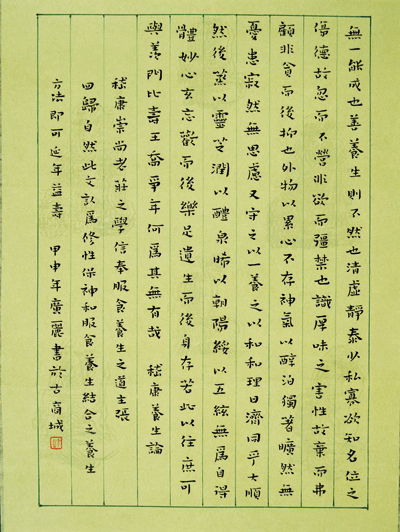 無一能成也善養生則不然也清虛靜泰少私寡欲知名位之
傷德故忽而不營非欲而彊禁也識厚味之害性故棄而弗
顧非貪而後抑也外物以累心不存神氣以醇泊獨著曠然無
憂患寂然無思慮又守之以一養之以和和理日濟同乎大順
然後蒸以靈芝潤以醴泉晞以朝陽綏以五絃無為自得
體妙心玄忘歡而後樂足遺生而後身存若此以往庶可
與羨門比壽王喬爭年何為其無有哉 嵇康養生論
嵇康崇尚老莊之學信奉服食養生之道主張
回歸自然此文訟為修性保神和服食養生結合之養生
方法即可延年益壽 甲申年廣麗書於古商城